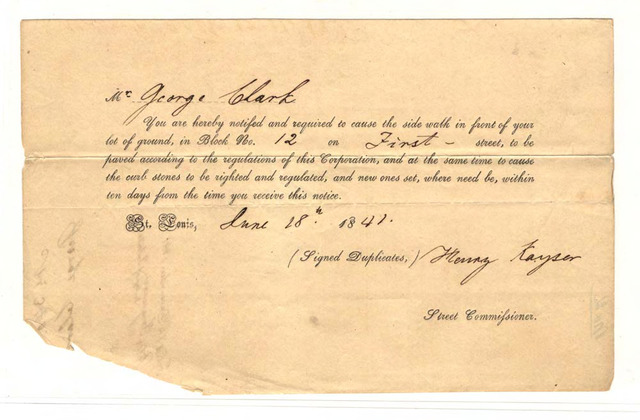 Mr George Clark
You are hereby notifed and required to cause the side walk in front of your
lot of ground, in Block No. 12 on First - street, to be
paved according to the regulations of this Corporation, and at the same time to cause
the curb stones to be righted and regulated, and new ones set, where need be, within
ten days from the time you receive this notice.
St. Louis, June 18th 1841.
(Signed Duplicates,) Henry Kayser
Street Commissioner.